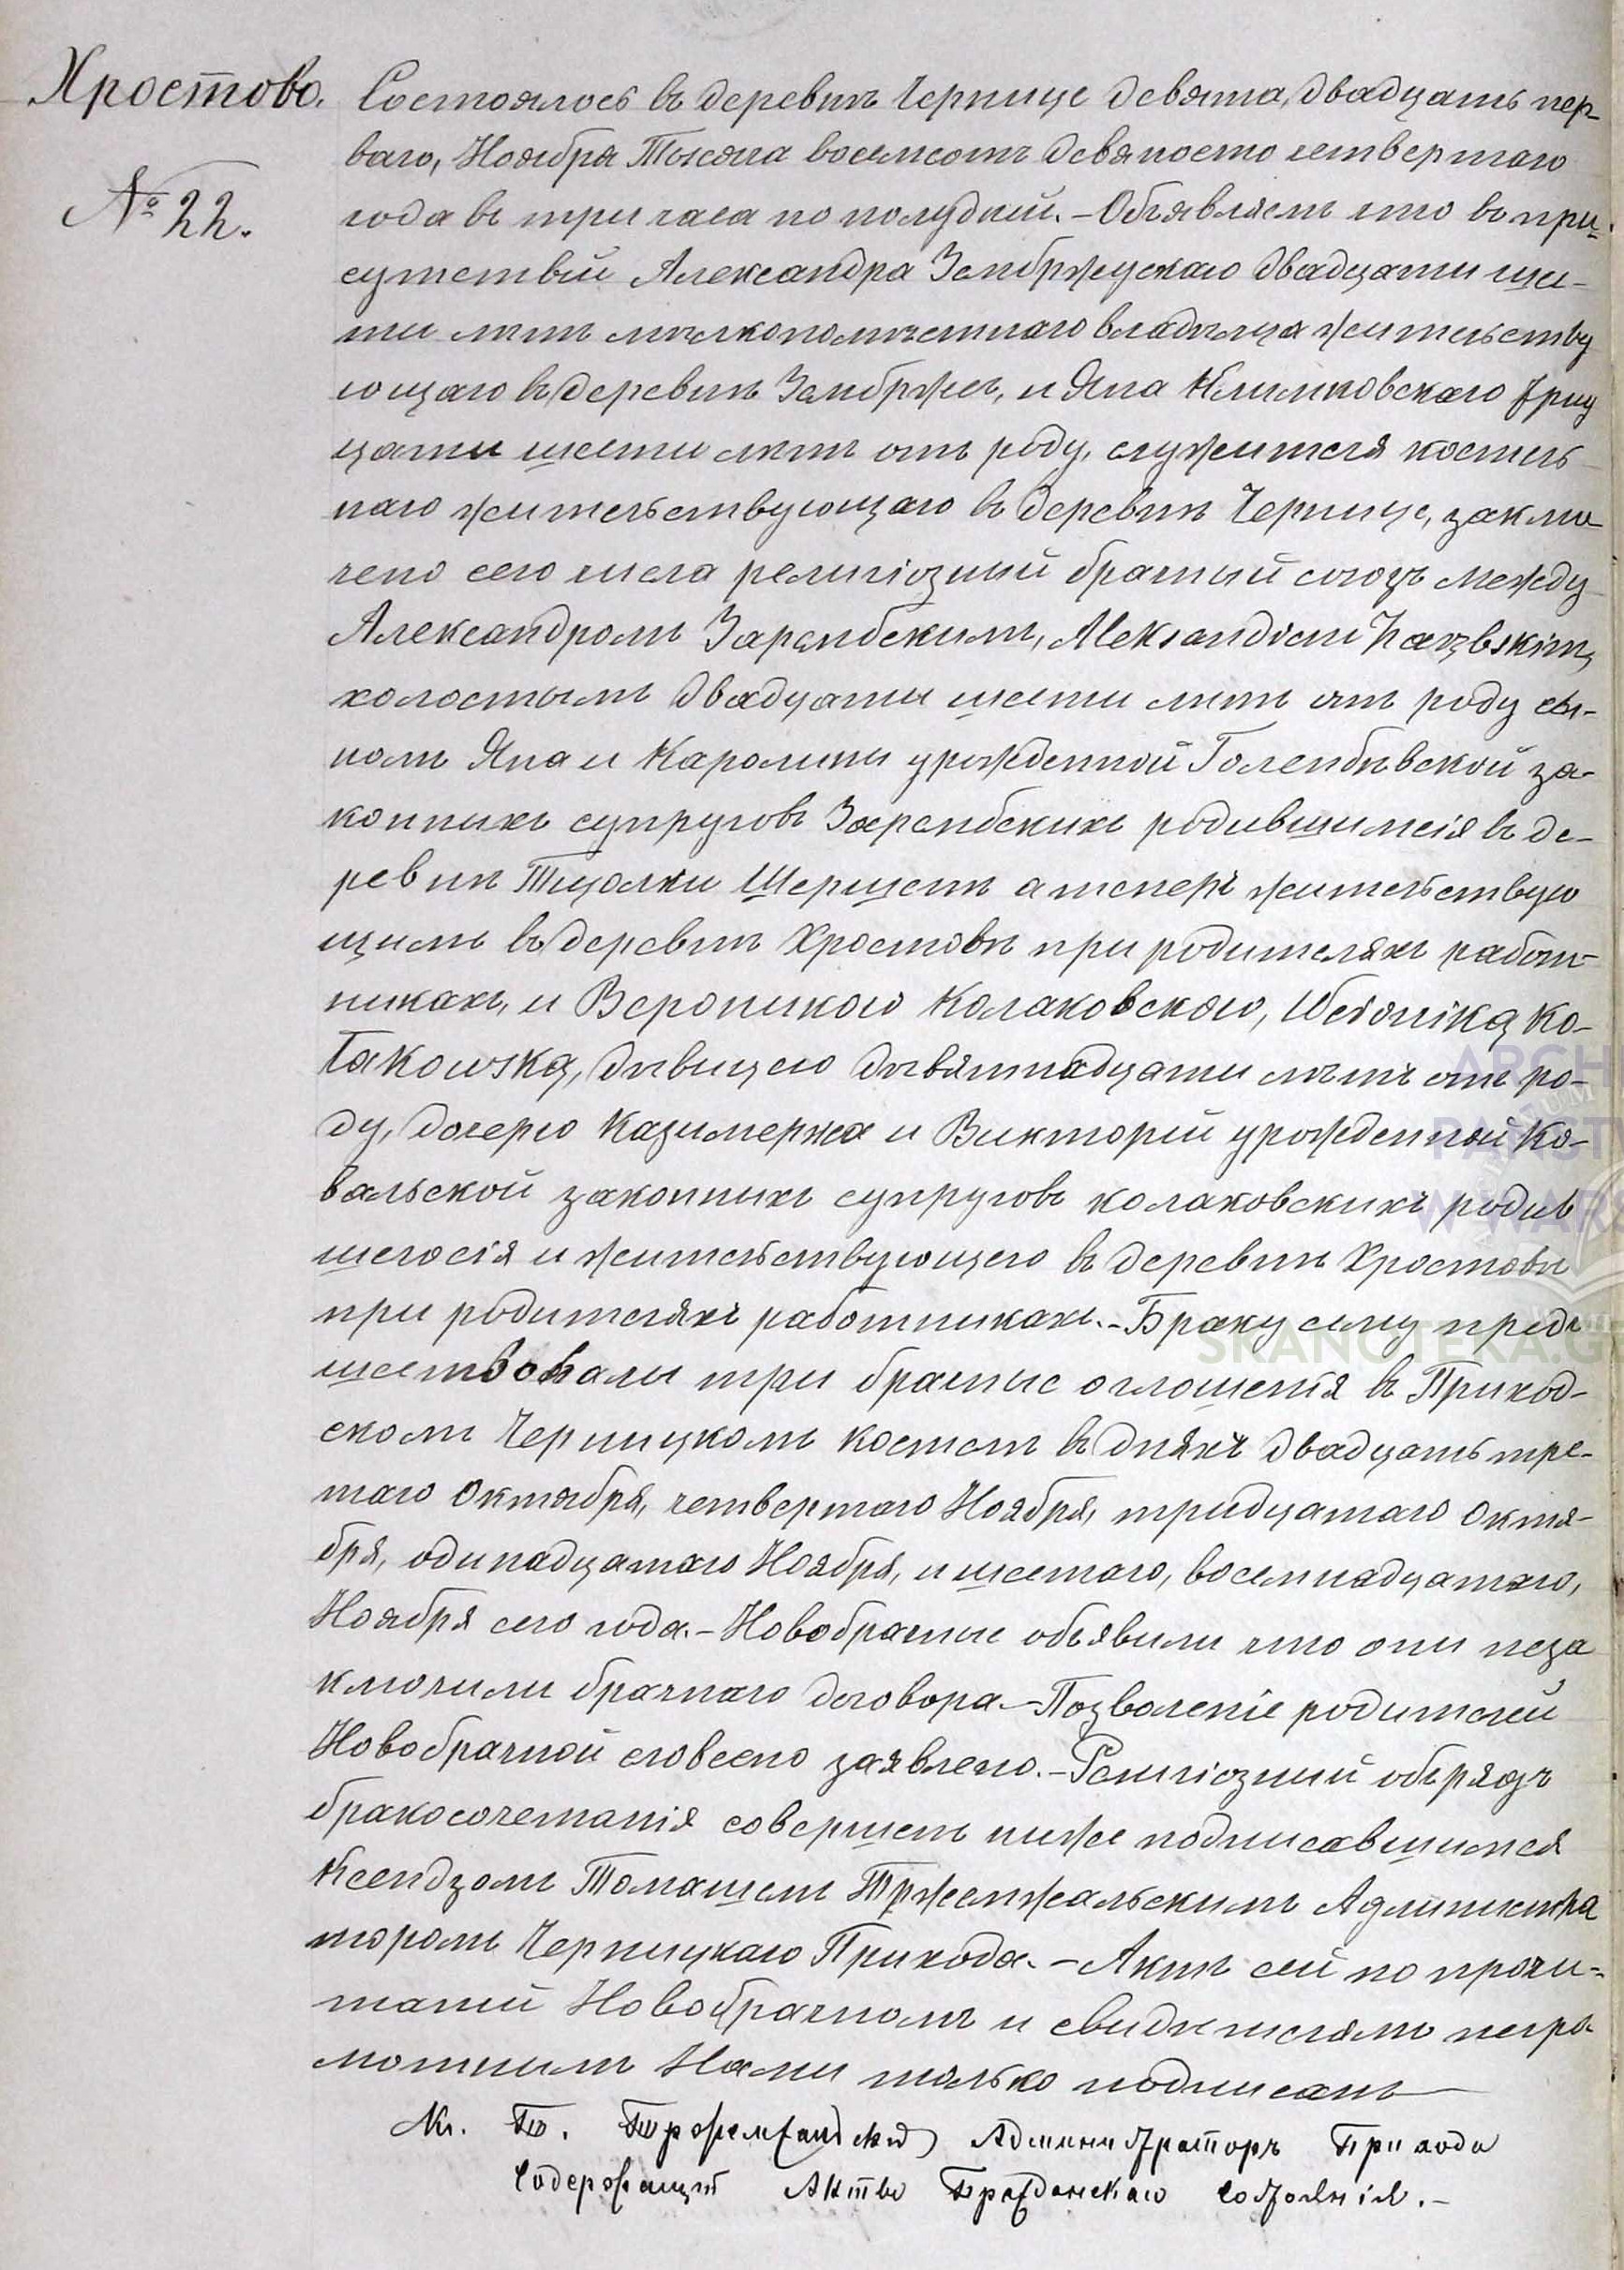 Хростово.
№ 22.
Состоялось въ деревнѣ Чернице девята, двадцать пер-
ваго, Ноября Тысяча восемсотъ девяносто четвертаго
года въ три часа по полудний. – Объявляемъ что въ при-
сутствій Александра Зембржускаго двадцати ше-
ти лѣтъ мѣлкопомѣстнаго владѣльца жительству
ющаго въ деревнѣ Зембрже, и Яна Климковскаго трид
цати шести лѣтъ отъ роду, служителя костель
наго жительствующаго въ деревнѣ Чернице, заклю-
чено сего числа религіозный брачный союзъ между
Александромъ Зарембскимъ, Aleksandrem Zarębskim,
холостымъ двадцати шести лѣтъ отъ роду сы-
номъ Яна и Каролины урожденной Голембѣвской за-
конныхъ супруговъ Зарембскихъ родившимсія въ де-
ревнѣ а теперъ жительствую
щимъ въ деревнѣ Хростовѣ при родителяхъ работ-
никахъ, и Вероникою Колаковскою, Weroniką Ko-
łakowską, дѣвицею дѣвятнадцати лѣтъ отъ ро-
ду, дочерю Казимержа и Викторій урожденной Ко-
вальской законныхъ супруговъ колаковскихъ родив
шегосія и жительствующего въ деревнѣ Хростовѣ
при родителяхъ работникахъ. – Браку сему пред
шествовали три брачные оглошенія въ Приход-
скомъ Черницкомъ костелѣ въ дняхъ двадцать тре-
таго Октября, четвертаго Ноября, тридцатаго Октя-
бря, одинадцатаго Ноября, и шестаго, восемнадцатаго,
Ноября сего года. – Новобрачные объявили что они неза
ключили брачнаго договора. – Позволеніе родителей
Новобрачной словесно заявлено. – Религіозный обърядъ
бракосочетанія совершенъ ниже подписавшимся
Ксендзомъ Томашемъ Тржемжальскимъ Администра
торомъ Черницкаго Прихода. – Актъ сей по прочи-
таній Новобрачномъ и свидѣтелямъ негра
мотнымъ Нами только подписанъ
Кс. Т. Администраторъ Прихода
Содержащій Акты Гражданскаго Состоянія. –